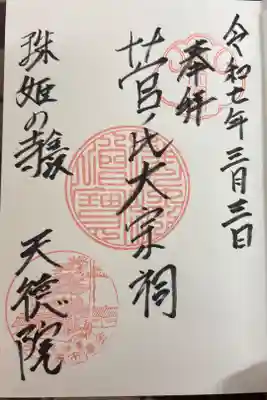 令和七年 三月三日
奉拝
菅ノ氏大宗祠
珠姫の寺
天徳院